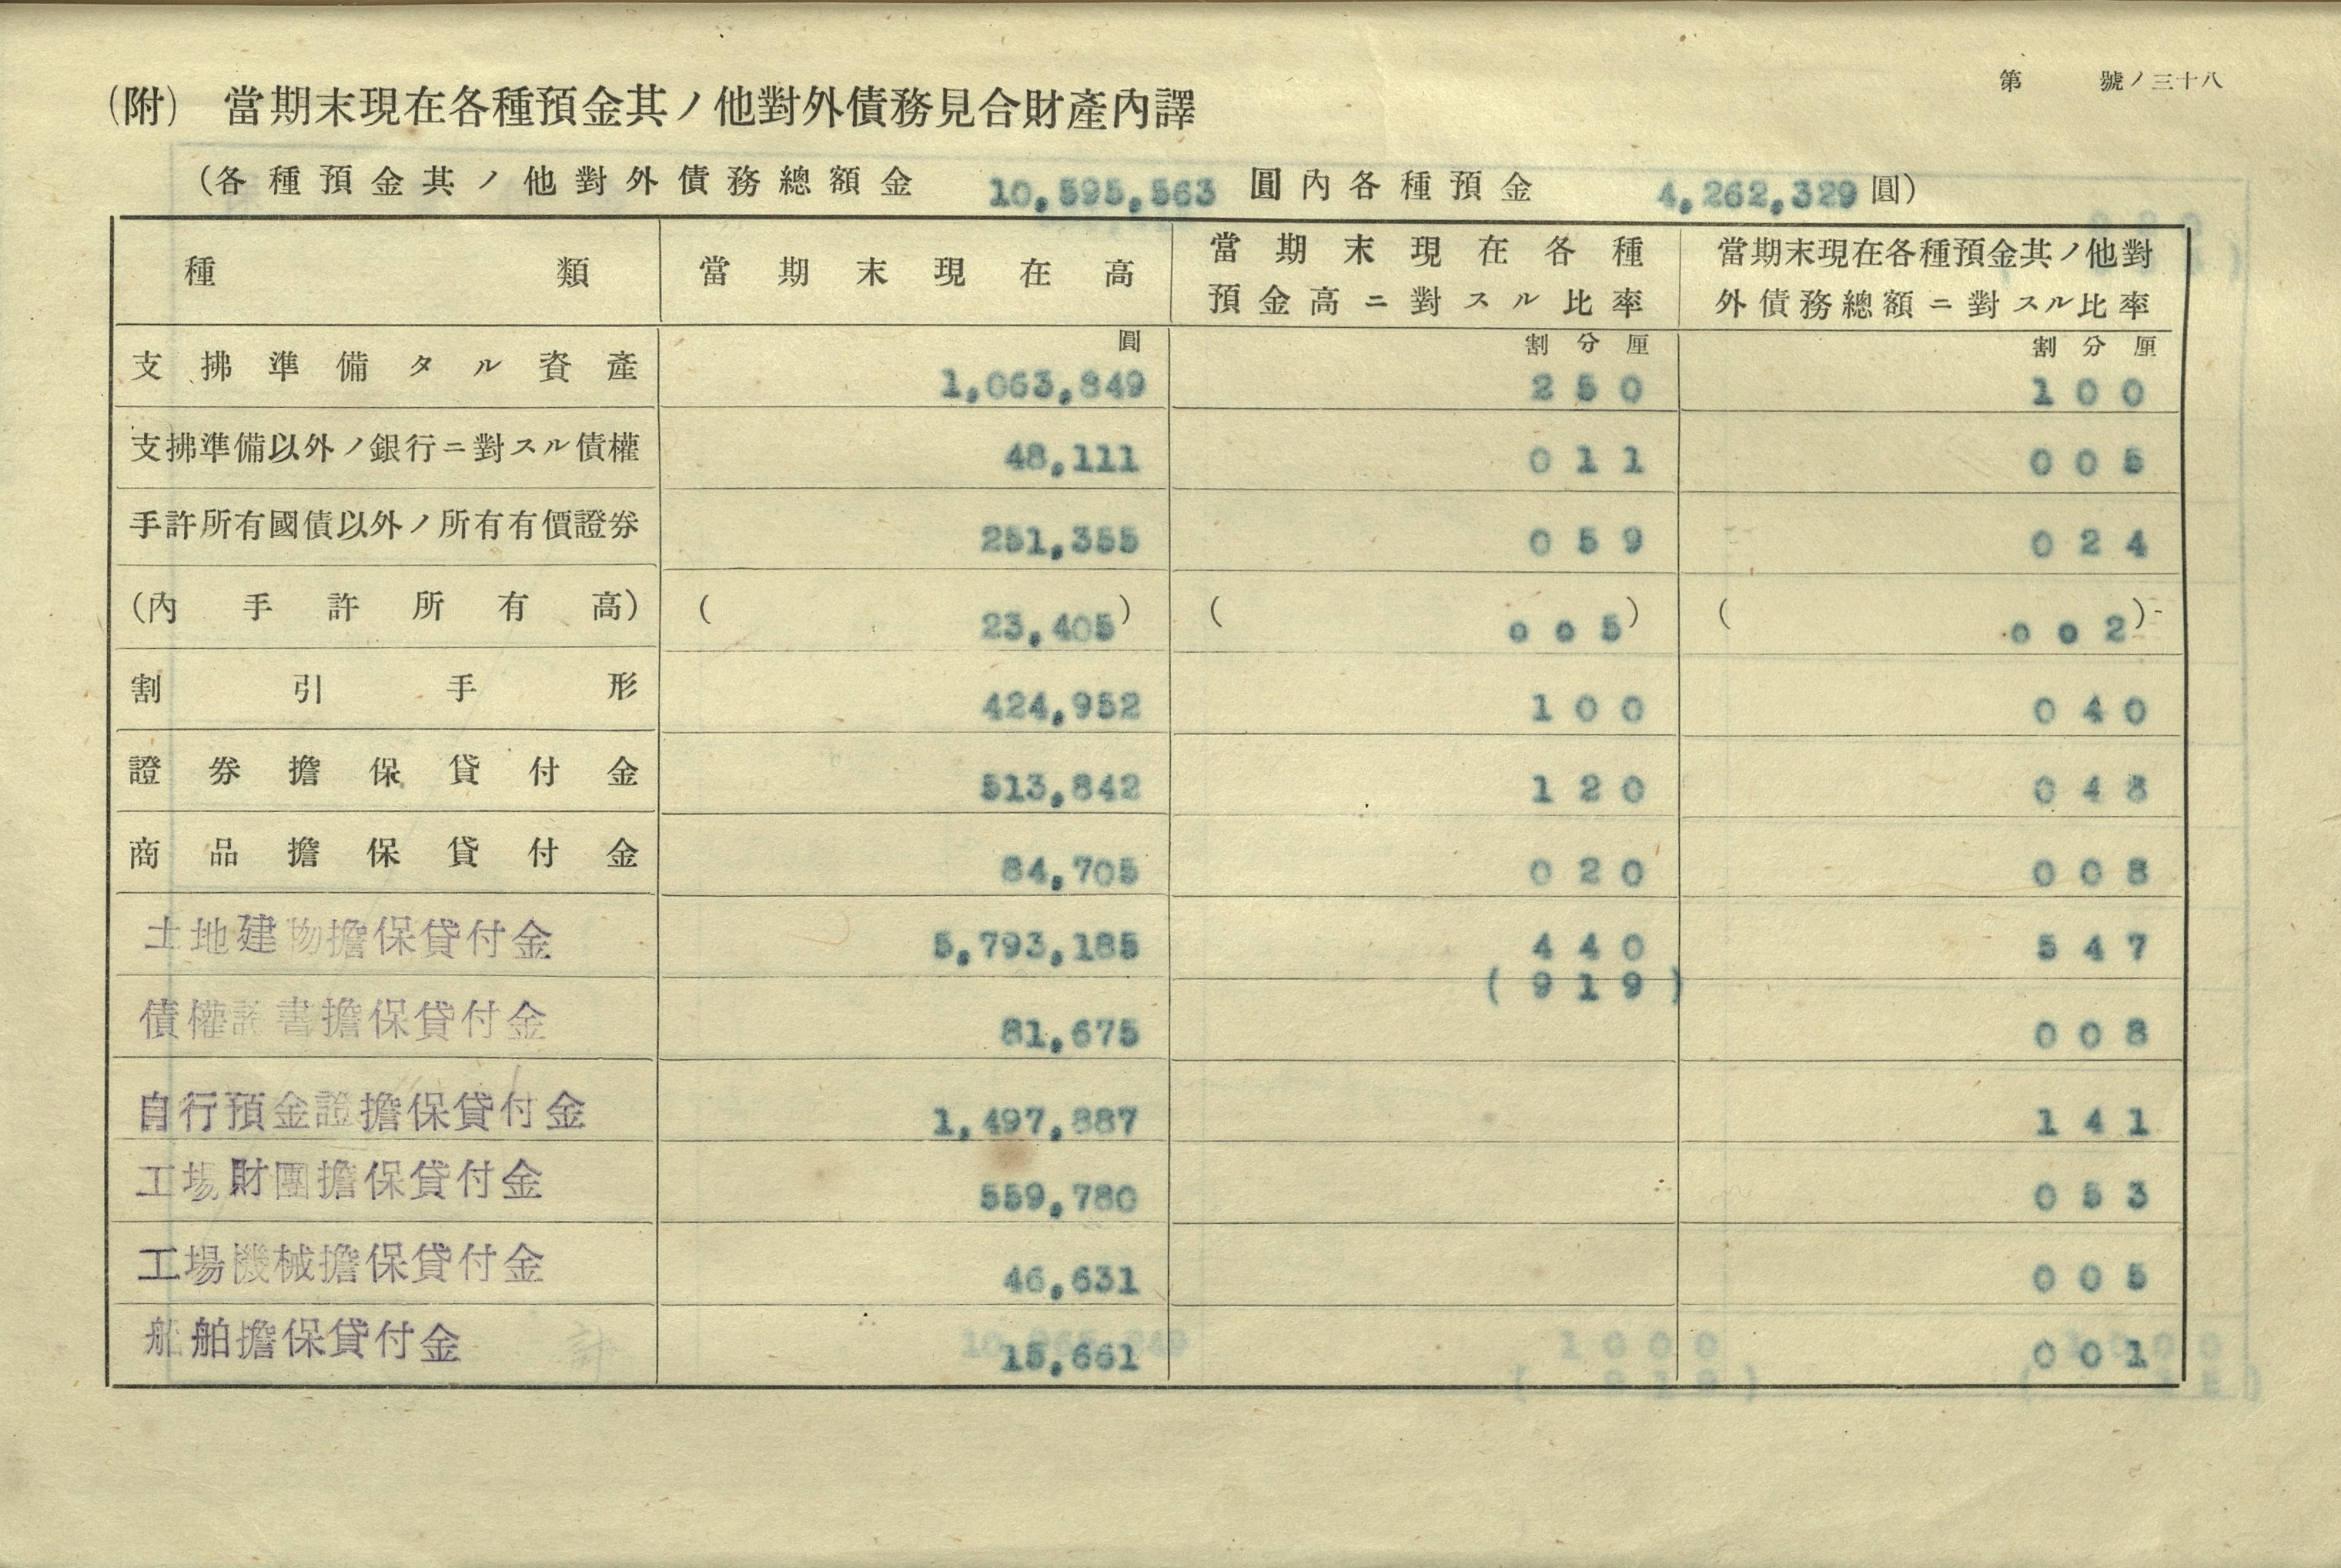 第 號ノ三十八
(附) 當期末現在各種預金其ノ他對外債務見合財產內譯
(各種預金其ノ他對外債務總額金 10,595,563 圓內各種預金 4,262,329 圓)
種類 當期末現在高 當期末現在各種預金高ニ對スル比率 當期末現在各種預金其ノ他對外債務總額ニ對スル比率
圓 割分厘 割分厘
支拂準備タル資產 1,063,849 250 100
支拂準備以外ノ銀行ニ對スル債權 48,111 011 005
手許所有國債以外ノ所有有價證券 251,355 059 024
(內手許所有高) (23,405) (005) (002)
割引手形 424,952 100 040
證券擔保貸付金 513,842 120 048
商品擔保貸付金 84,705 020 008
土地建物擔保貸付金 5,793,185 440 547
(919)
債權證書擔保貸付金 81,675 008
自行預金證擔保貸付金 1,497,887 141
工場財團擔保貸付金 559,780 053
工場機械擔保貸付金 46,631 005
船舶擔保貸付金 15,661 001